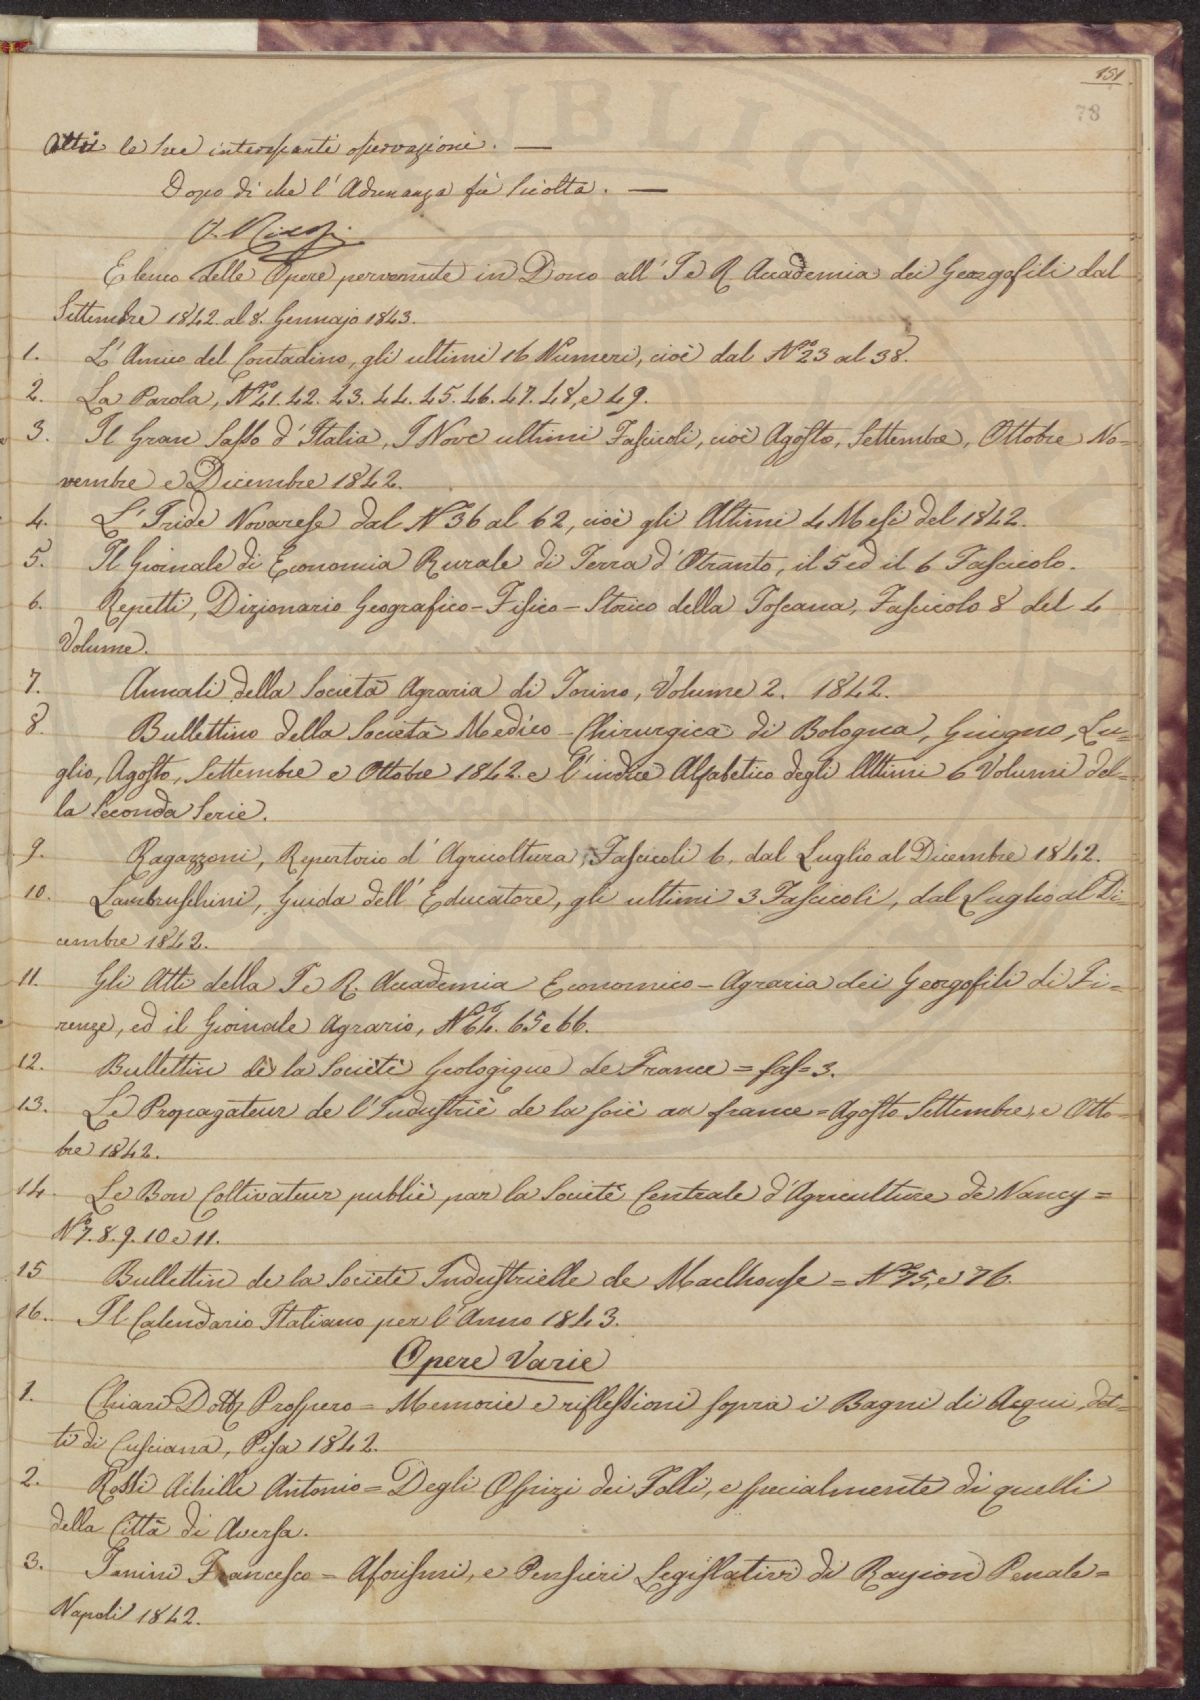 151
78
altri le sue interessanti osservazioni. —
Dopo di che l'Adunanza fù sciolta. —
Elenco delle Opere pervenute in Dono all' I e R. Accademia dei Georgofili dal
Settembre 1842. al 8. Gennajo 1843.
1. L'Amico del Contadino, gli ultimi 16 Numeri, cioè dal N.º 23 al 38.
2. La Parola, N.º 41. 42. 43. 44. 45. 46. 47. 48, e 49.
3. Il Gran Sasso d'Italia, I Nove ultimi Fascicoli, cioè Agosto, Settembre, Ottobre No=
vembre e Dicembre 1842.
4. L'Iride Novarese dal N.º 36 al 62, cioè gli Ultimi 4 Mesi del 1842.
5. Il Giornale di Economia Rurale di Terra d'Otranto, il 5 ed il 6 Fascicolo.
6. Repetti, Dizionario Geografico-Fisico-Storico della Toscana, Fascicolo 8 del 4
Volume.
7. Annali della Società Agraria di Torino, Volume 2. 1842.
8. Bullettino della Società Medico-Chirurgica di Bologna, Giugno, Lu=
glio, Agosto, Settembre e Ottobre 1842. e l'indice Alfabetico degli Ultimi 6 Volumi del=
la Seconda Serie.
9. Ragazzoni, Repertorio d'Agricoltura, Fascicoli 6, dal Luglio al Dicembre 1842.
10. Lambruschini, Guida dell'Educatore, gli ultimi 3 Fascicoli, dal Luglio al Di=
cembre 1842.
11. Gli Atti della I e R. Accademia Economico-Agraria dei Georgofili di Fi=
renze, ed il Giornale Agrario, N.ⁱ 64. 65 e 66.
12. Bullettin de la Societè Geologique de France = fas= 3.
13. Le Propagateur de l'Industriè de la soiè en france = Agosto Settembre, e Otto=
bre 1842.
14. Le Bon Coltivateur publiè par la Societè Centrale d'Agriculture de Nancy =
N.º 7. 8. 9. 10 e 11.
15 Bullettin de la Societè Industrielle de Maelhouse = N.º 75, e 76.
16. Il Calendario Italiano per l'Anno 1843.
Opere Varie
1. Chiari Dott. Prospero = Memorie e riflessioni sopra i Bagni di Acqui, det=
ti di Casciana, Pisa 1842.
2. Rossi Achille Antonio = Degli Ospizi dei Folli, e specialmente di quelli
della Città di Aversa.
3. Janini Francesco = Aforismi, e Pensieri Legislativi di Ragion Penale =
Napoli 1842.